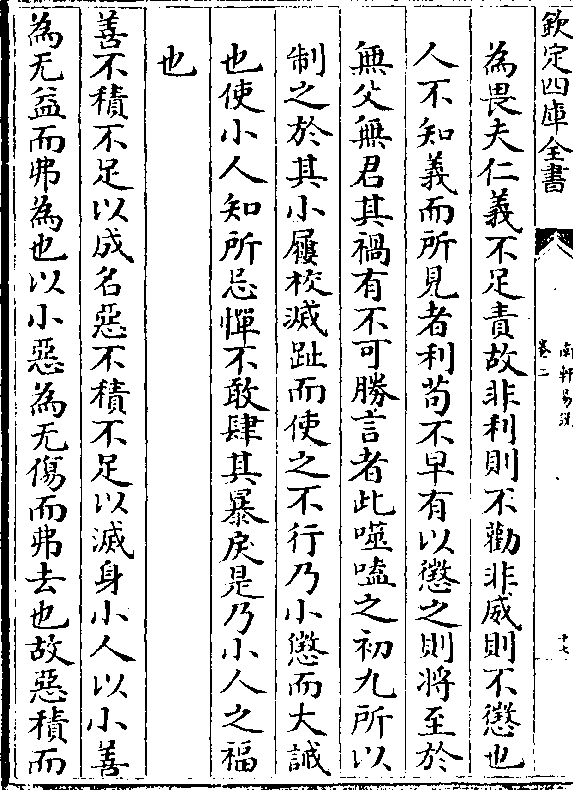 欽定四庫全書
南軒易說
卷二
十七
為畏夫仁義不足責故非利則不勸非威則不懲也
人不知義而所見者利茍不早有以懲之則將至於
無父無君其禍有不可勝言者此噬嗑之初九所以
制之於其小屨校滅趾而使之不行乃小懲而大誡
也使小人知所忌憚不敢肆其暴戾是乃小人之福
也
善不積不足以成名惡不積不足以滅身小人以小善
為无益而弗為也以小惡為无傷而弗去也故惡積而